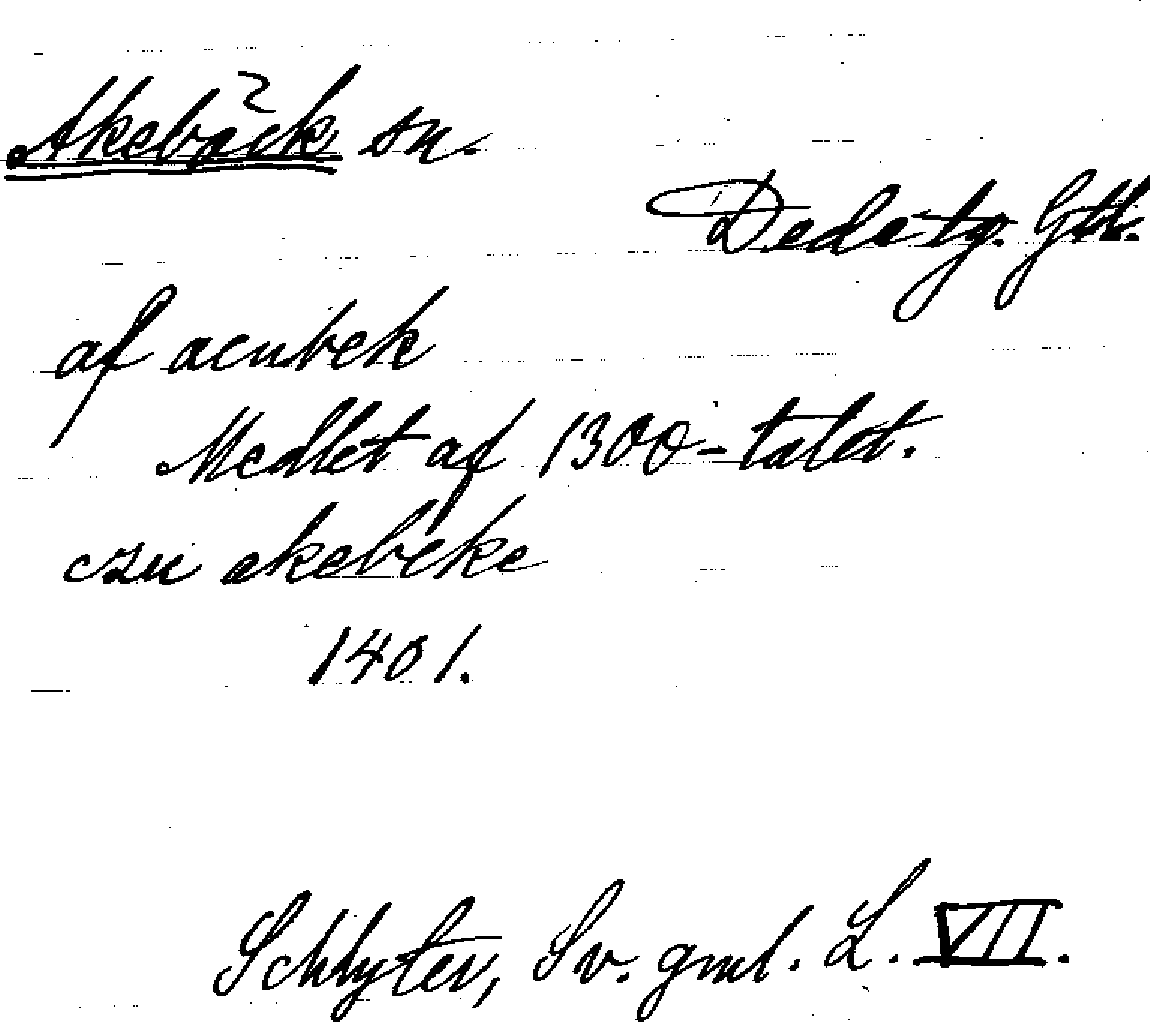 Akebäck sn.
Dede tg. Gtl.
af acubek
Medlet af 1300-talet.
czu akebeke
1401.
Schlyter, Sv. gml. L. VII.